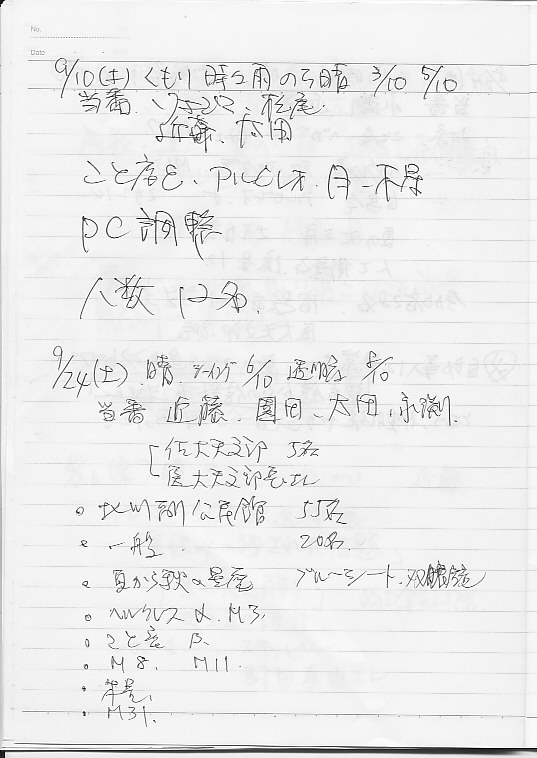 No.
Date
9/10(土) くもり時々雨のち晴 3/10 5/10
当番 松尾
近藤、太田
こと座ε、アルビレオ、月−木星
PC調整
人数 12名
9/24(土) 晴 シーイング 6/10 透明度 5/10
当番 近藤、園田、太田、永渕
佐大天文部 5名
医大天文部
北川副公民館 55名
一般 20名
夏から秋の星座 ブルーシート、双眼鏡
ヘルクレスα、M3
こと座 β
M8 M11
木星、
M31